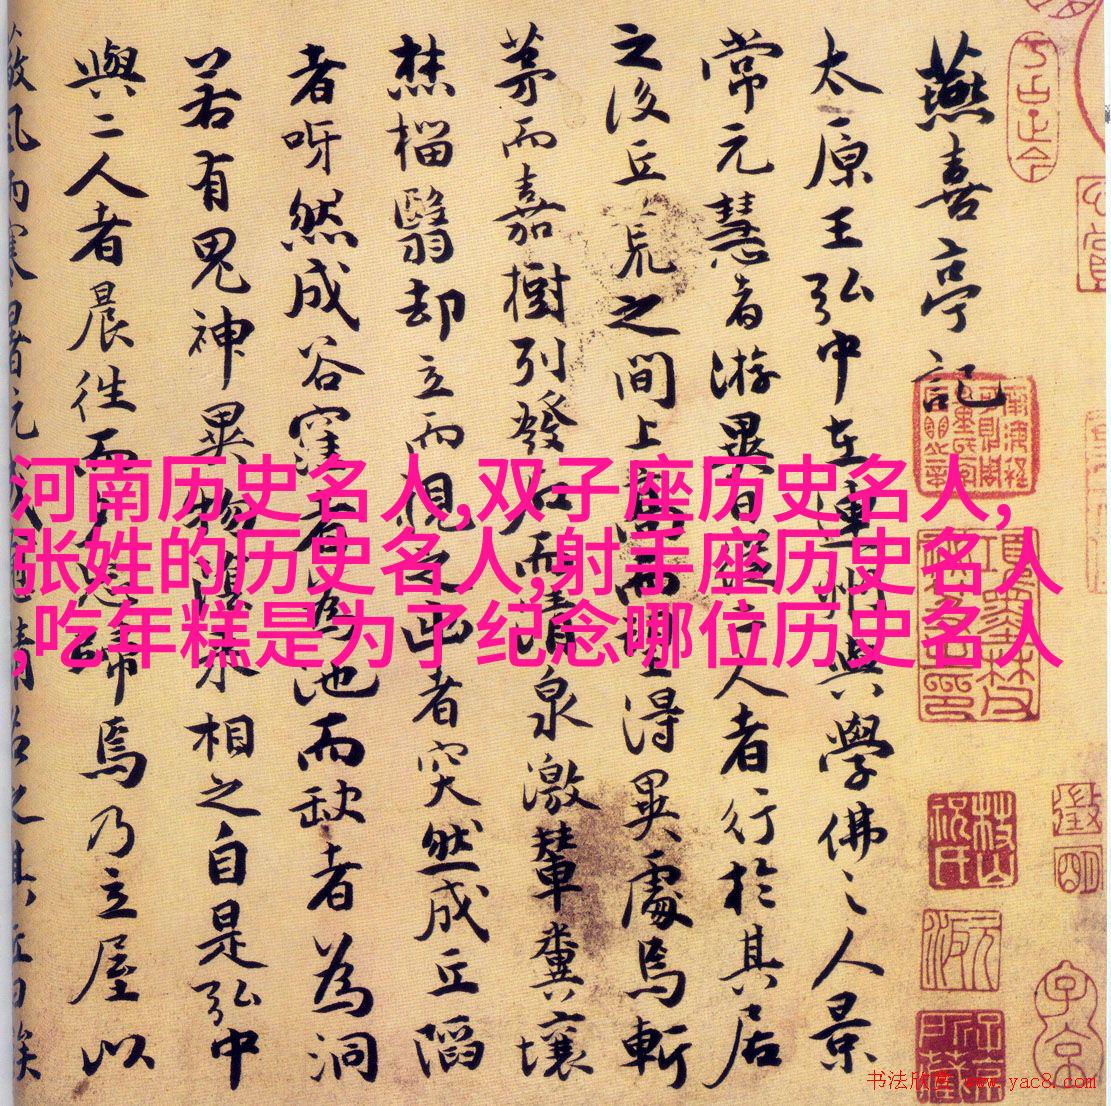 燕喜亭記
太原王弘中在連州與學佛之人景
常元慧者游異日從二人者行於其居
之後丘荒之間上高而望得異處焉斬
茅而嘉樹列發石而清泉激輦糞壤
焚榴翳却立而視之出者突然成丘陷
者呀然成谷窪者為池而缺者為洞
若有鬼神異物陰來相之自是弘中
與二人者晨往而夕忘歸焉乃立屋以
河南历史名人,双子座历史名人,
张姓的历史名人,射手座历史名人
,吃年糕是为了纪念哪位历史名人
书法欣赏 www.yac8.com